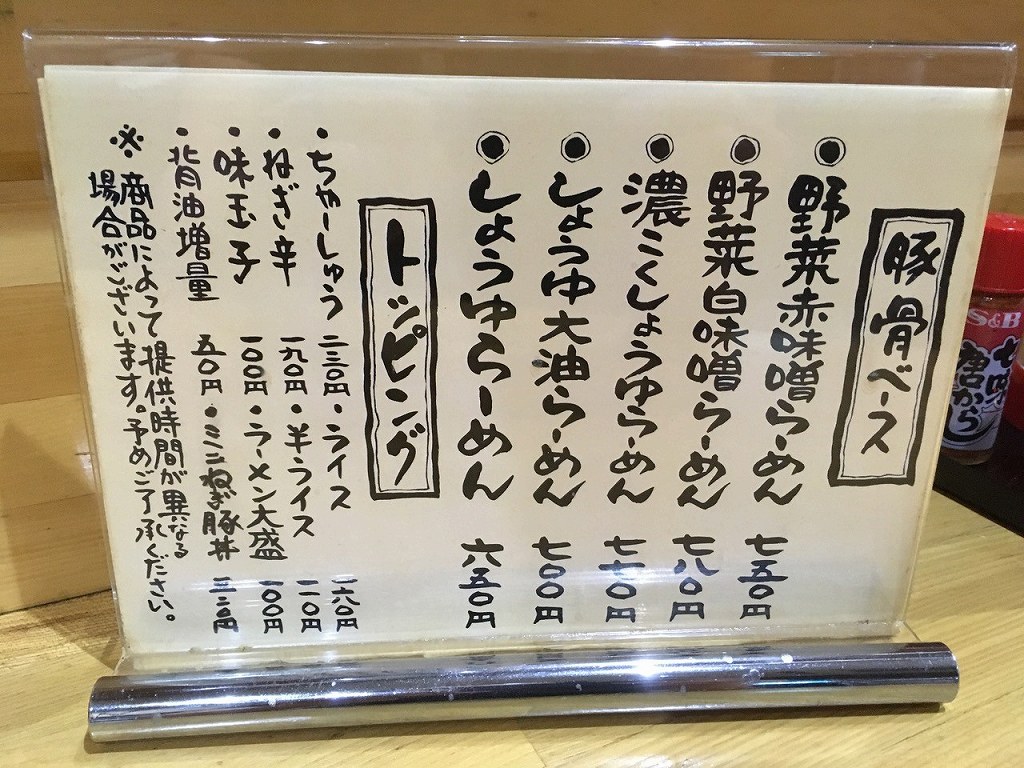 豚骨ベース
◉野菜赤味噌らーめん 七五〇円
◉野菜白味噌らーめん 七八〇円
◉濃こくしょうゆらーめん 七七〇円
◉しょうゆ大油らーめん 七〇〇円
◉しょうゆらーめん 六五〇円
トッピング
・ちゃーしゅう 二三〇円・ライス 一六〇円
・ねぎ辛 一九〇円・半ライス 一一〇円
・味玉子 一〇〇円・ラーメン大盛 一〇〇円
・背油増量 五〇円・ミニねぎ豚丼 三二〇円
※商品によって提供時間が異なる
場合がございます。予めご了承ください。
S&B
七味
唐から